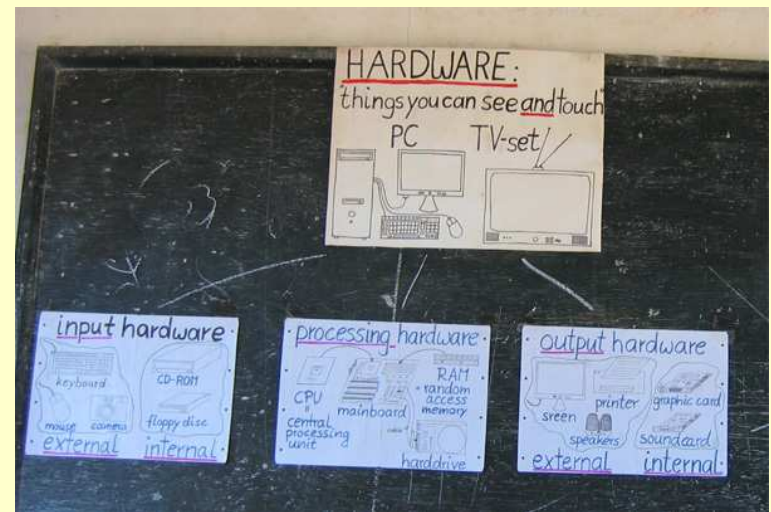 HARDWARE:
"things you can see and touch"
PC TV-set
input hardware
keyboard
CD-ROM
mouse camera
floppy disc
external internal
processing hardware
CPU
=
central
processing
unit
mainboard
RAM
= random
access
memory
cable
harddrive
output hardware
sreen
printer
graphic card
speakers
soundcard
external internal